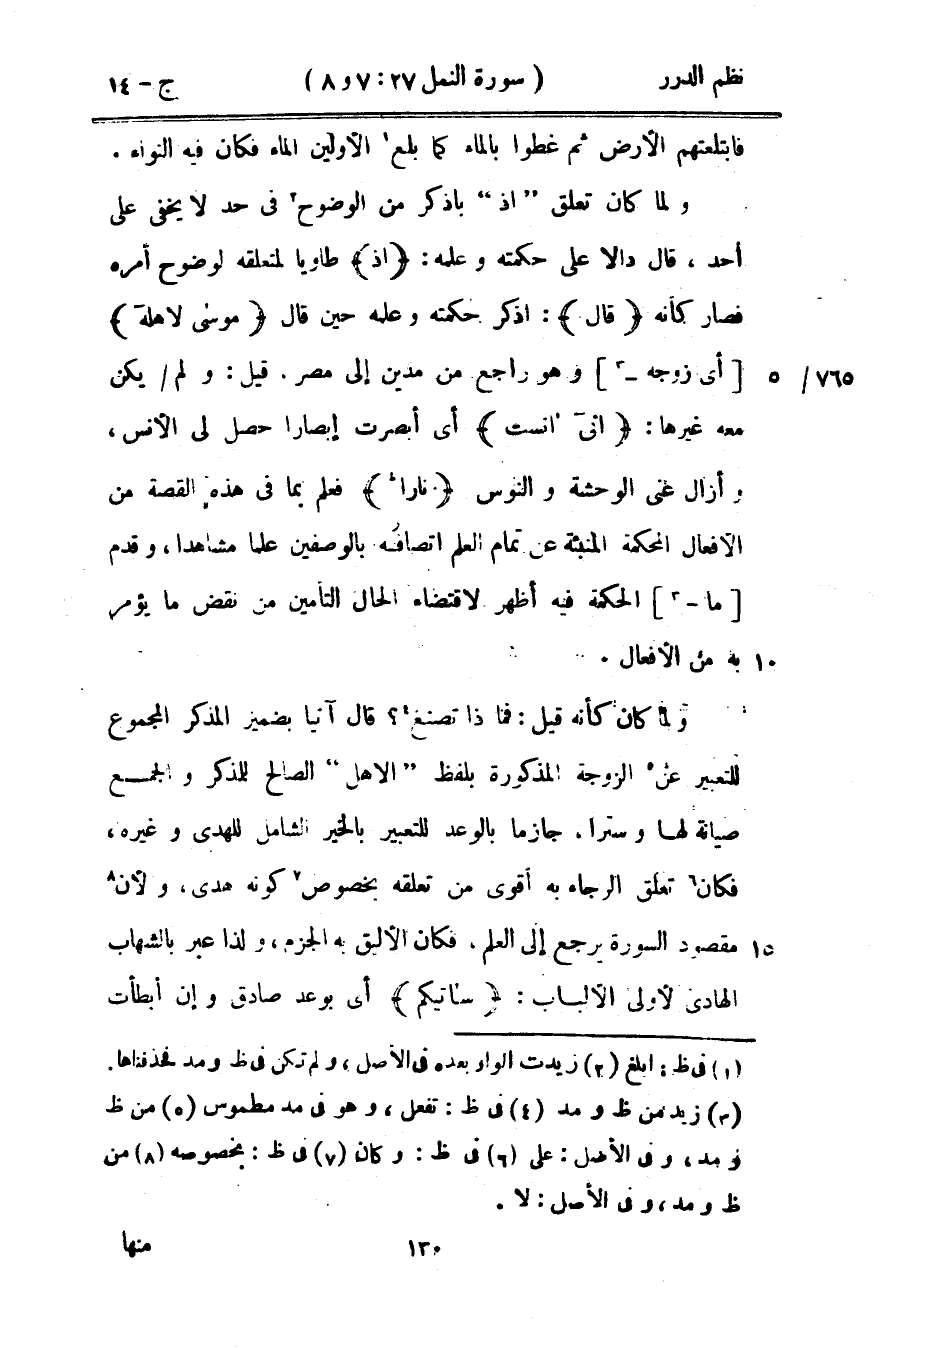 نظم الدرر ( سورة النمل ٢٧ : ٧ و ٨ ) ج – ١٤
فابتلعتهم الأرض ثم غطوا بالماء كما بلغ١ الأولين الماء فكان فيه التواء .
و لما كان تعلق ” اذ “ باذكر من الوضوح٢ فى حد لا يخفى على
أحد ، قال دالا على حكمته و علمه : ﴿ اذ ﴾ طاويا لمتعلقه لوضوح أمره
فصار كأنه ﴿ قال ﴾ : اذكر حكمته و علمه حين قال ﴿ موسى لاهلهٓ ﴾
[ أى زوجه -٣ ] و هو راجع من مدين إلى مصر . قيل : و لم / يكن ٥ / ٧٦٥
معه غيرها : ﴿ انىٓ اٰنست ﴾ أى أبصرت إبصارا حصل لى الأنس ،
و أزال عنى الوحشة و النوس ﴿ نارا ؕ ﴾ فعلم بما فى هذه القصة من
الأفعال المحكمة المنبئة عن تمام العلم اتصافُه بالوصفين علما مشاهدا ، و قدم
[ ما -٣ ] الحكمة فيه أظهر لاقتضاء الحال التأمين من نقض ما يؤمر
١٠ به من الأفعال .
و لما كان كأنه قيل : فما ذا تصنع٤ ؟ قال آتيا بضمير المذكر المجموع
للتعبير عن٥ الزوجة المذكورة بلفظ ” الاهل “ الصالح للذكر و الجمع
صيانة لها و سترا . جازما بالوعد للتعبير بالخير الشامل للهدى و غيره ،
فكان٦ تعلق الرجاء به أقوى من تعلقه بخصوص٧ كونه هدى ، و لأن٨
١٥ مقصود السورة يرجع إلى العلم ، فكان الأليق به الجزم ، و لذا عبر بالشهاب
الهادى لأولى الألباب : ﴿ سٰاتيكم ﴾ أى بوعد صادق و إن أبطأت
(١) فى ظ : ابلغ (٢) زيدت الواو بعده فى الأصل ، و لم تكن فى ظ و مد فحذفناها .
(٣) زيد من ظ و مد (٤) فى ظ : تفعل ، و هو فى مد مطموس (٥) من ظ
و مد ، و فى الأصل : على (٦) فى ظ : و كان (٧) فى ظ : بخصوصه (٨) من
ظ و مد ، و فى الأصل : لا .
١٣٠ منها